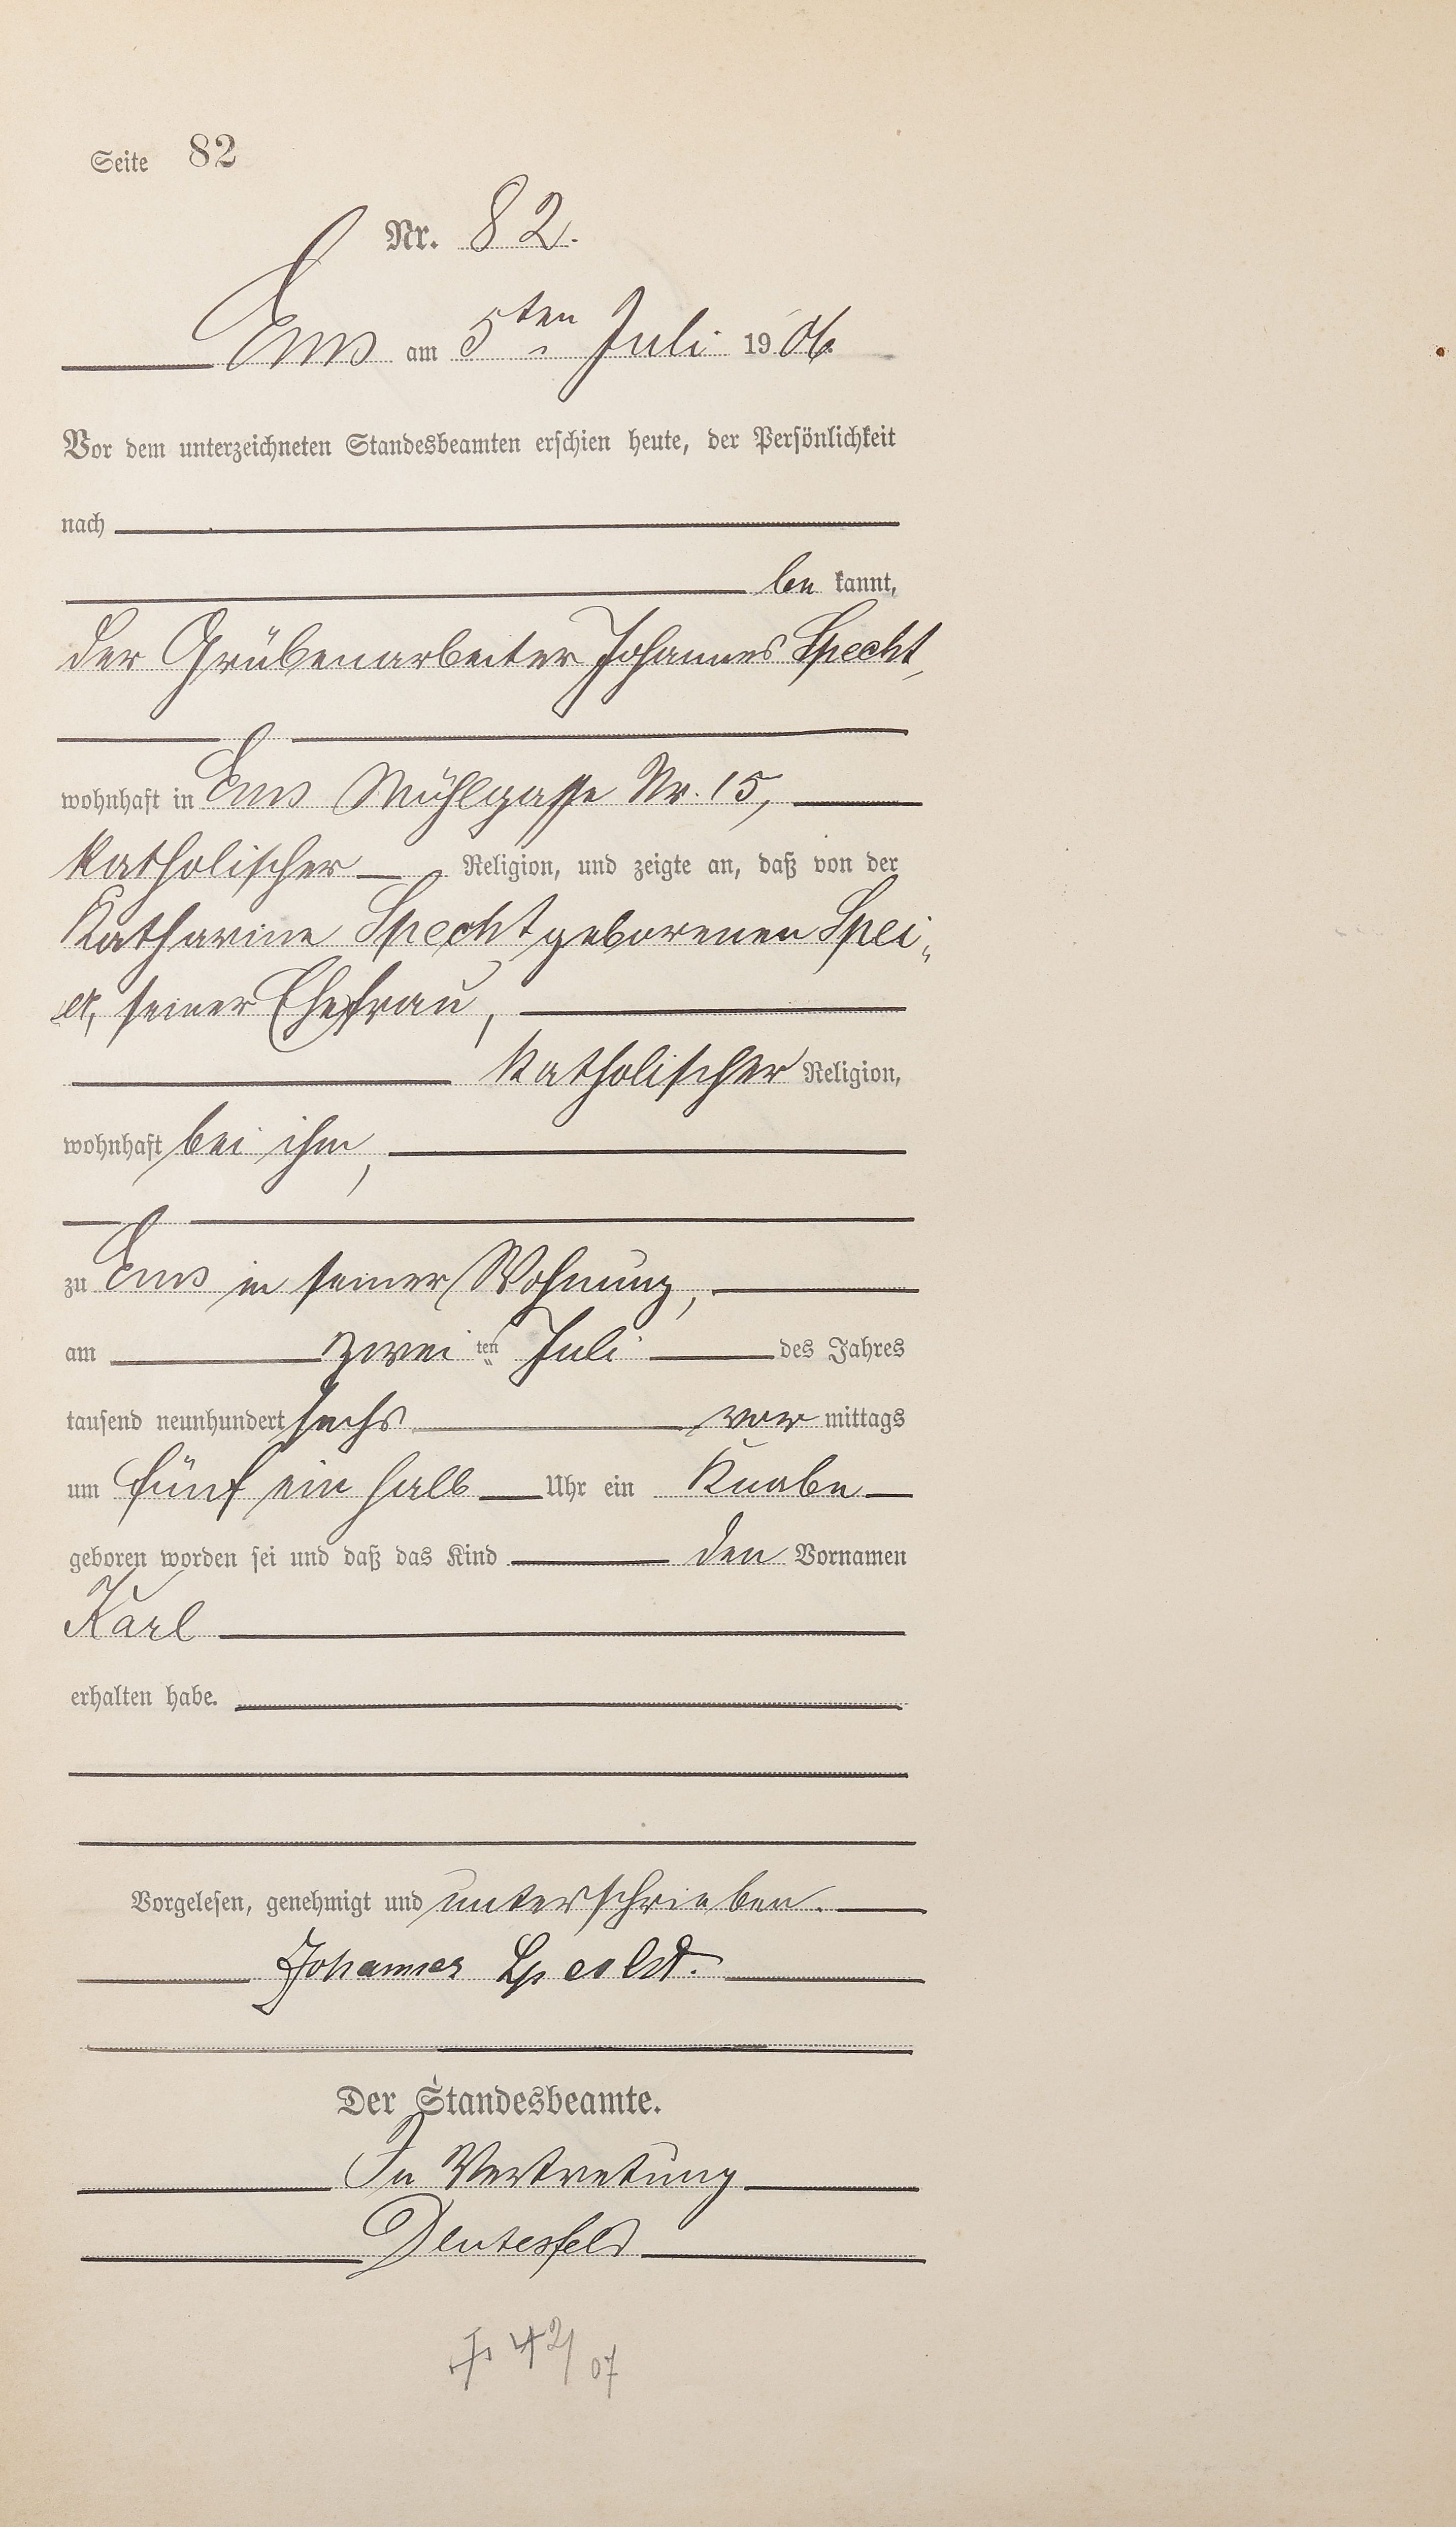 Seite 82
Nr. 82.
Ems am 5ten Juli 1906.
Vor dem unterzeichneten Standesbeamten erschien heute, der Persönlichkeit
nach
be kannt,
der Grübenarbeiter Johannes Specht,
wohnhaft in Ems Mühlgasse Nr. 15,
katholischer Religion, und zeigte an, daß von der
Katharine Specht geborenen Spei„
er, seiner Ehefrau,
katholischer Religion,
wohnhaft bei ihm,
zu Ems in seiner Wohnung,
am zwei ten Juli des Jahres
tausend neunhundert sechs vor mittags
um fünf ein halb Uhr ein Knabe
geboren worden sei und daß das Kind den Vornamen
Karl
erhalten habe.
Vorgelesen, genehmigt und unterschrieben.
Johannes Specht.
Der Standesbeamte.
In Vertretung
† 42/07